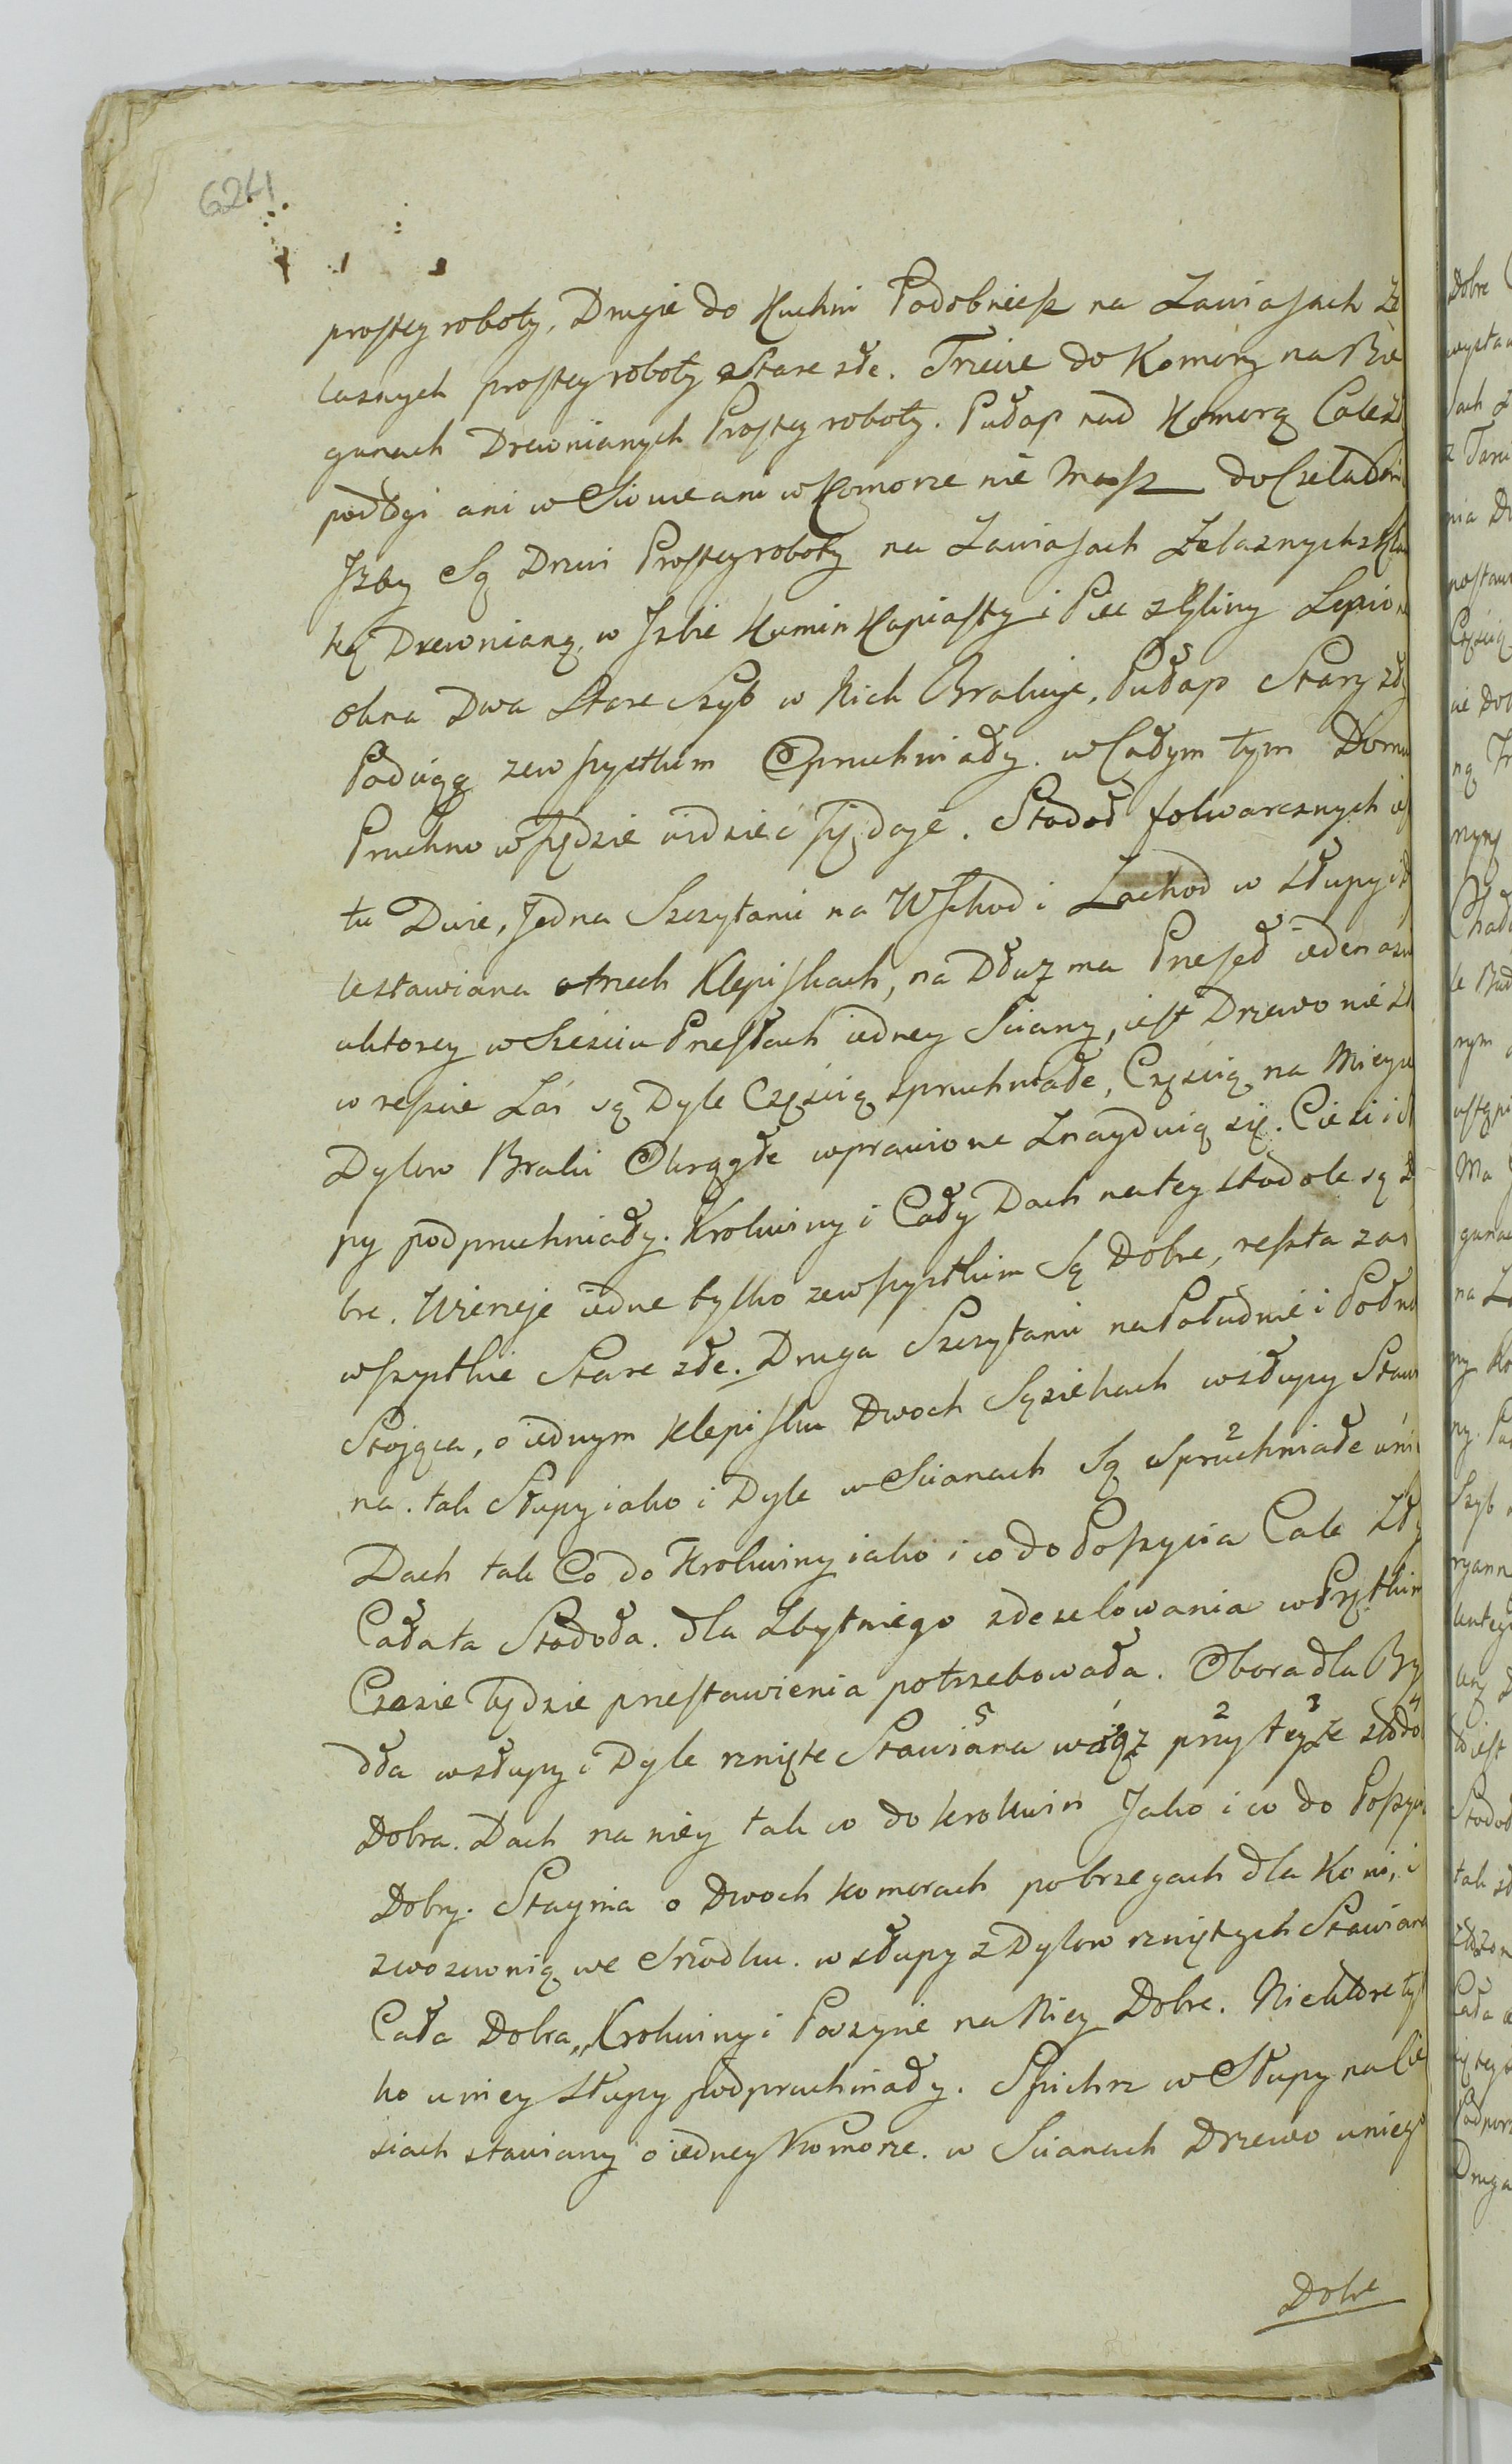 624
prostey roboty, Drugie do Kuchni Podobniesz na Zawiasach Że
laznych prostey roboty Stare złe. Trzecie do Komory na Bie
gunach Drewnianych Prostey roboty. Pułap nad Komorą Cale zł
podłogi ani w Sionie ani w Komorze nie masz do Czeladni
Jzby Są Drzwi Prostey roboty na Zawiasach Żelaznych z Klam
ką Drewnianą, w Jzbie Kumin Kapiasty i Piec z Gliny Lepion
okna Dwa Stare Szyb w Nich Brakuje, Pułap Stary zły
Podciągą zewszystkim Spruchniały. w Całym tym Domu
Pruchno wszędzie widzieć się daje. Stodoł folwarcznych ies
tu Dwie, Jedna Szczytami na Wschod i Zachod w słupy i d
lestawiana o trzech Klepiskach, na Dłuz ma Przesęd iedenaście
u ktorey w Sześciu Przesłach iedney Sciany, iest Drzewo nie zł
w reszcie Zaś są Dyle Częścią spruchniałe, Częścią na Mieysc
Dylow Braki Okrągłe wprawione Znayduią się. Ciesi i sł
py podpruchniały. Krokwiny i Cały Dach na tey stodole są do
bre. Wierzeje iedne tylko zewszystkim Są Dobre, reszta zas
wszystkie Stare złe. Druga Szczytami na Południe i Połno
Stojąca, o iednym klepisku Dwoch Sąsiekach w słupy Stawi
na. tak Słupy iako i Dyle w Scianach Są Spruchniałe 2
Dach tak Co do Krokwiny iako i co do Poszycia Cale Zły
Cała ta Stodoła. dla Zbytniego zdezelowania w Prętkim
Czasie będzie przestawienia potrzebowała. Obora dla By
dła w słupy i Dyle rznięte Stawiana wiąz przy teyże stodo
5 2 3 4
Dobra. Dach na niey tak co do krokwin Jako i co do Poszyci
Dobry. Staynia o Dwoch komorach po brzegach dla Koni, i
z wozownią we Srzodku. w słupy z Dylow rzniętych Stawiana
Cała Dobra, Krokwiny i Poszycie na Niey Dobre. Niektore tyl
ko u niey Słupy podpruchniały. Spichrz w Słupy na Cie
siach stawiany o iedney Komorze. w Scianach Drzewo u niego
Dobre